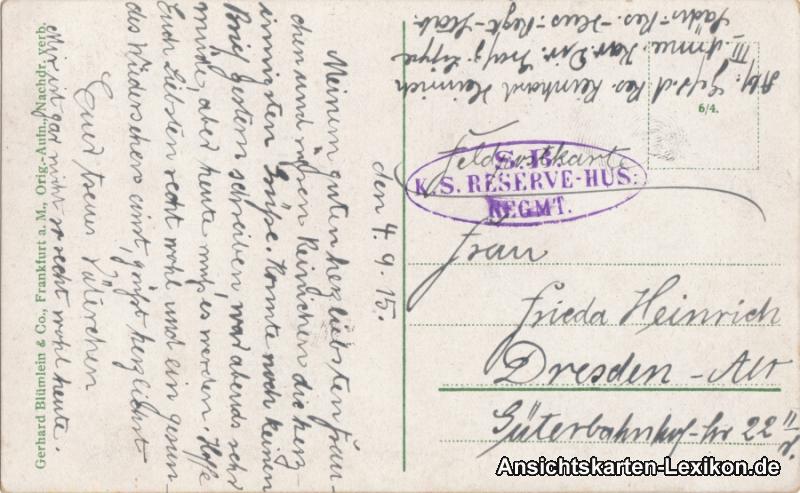 den 4.9.15.
Meinem guten herzliebsten Frau-
chen und meinen Reinichen die herz-
innigsten Grüße. Konnte noch keinen
Brief gestern schreiben war abends sehr
müde, aber heute muß es werden. Hoffe
Euch Liebsten recht wohl und ein gesun
des Wiedersehen eint, grüßt herzlichst
Euer treues Väterchen
Mir ist gar nicht so recht wohl heute.
Gerhard Blümlein & Co., Frankfurt a. M., Orig.-Aufn., Nachdr. verb.
Abs: Gefr. d. Res. Reinhard Heinrich
III Armee Kav. Div. Graf z. Lippe
Sächs.-Res.-Hus.-Regt.-Stab.
6/4.
Feldpostkarte
S. B.
K. S. RESERVE-HUS:
REGMT.
Frau
Frieda Heinrich
Dresden-Alt
Güterbahnhof-Str 22 II
Ansichtskarten-Lexikon.de